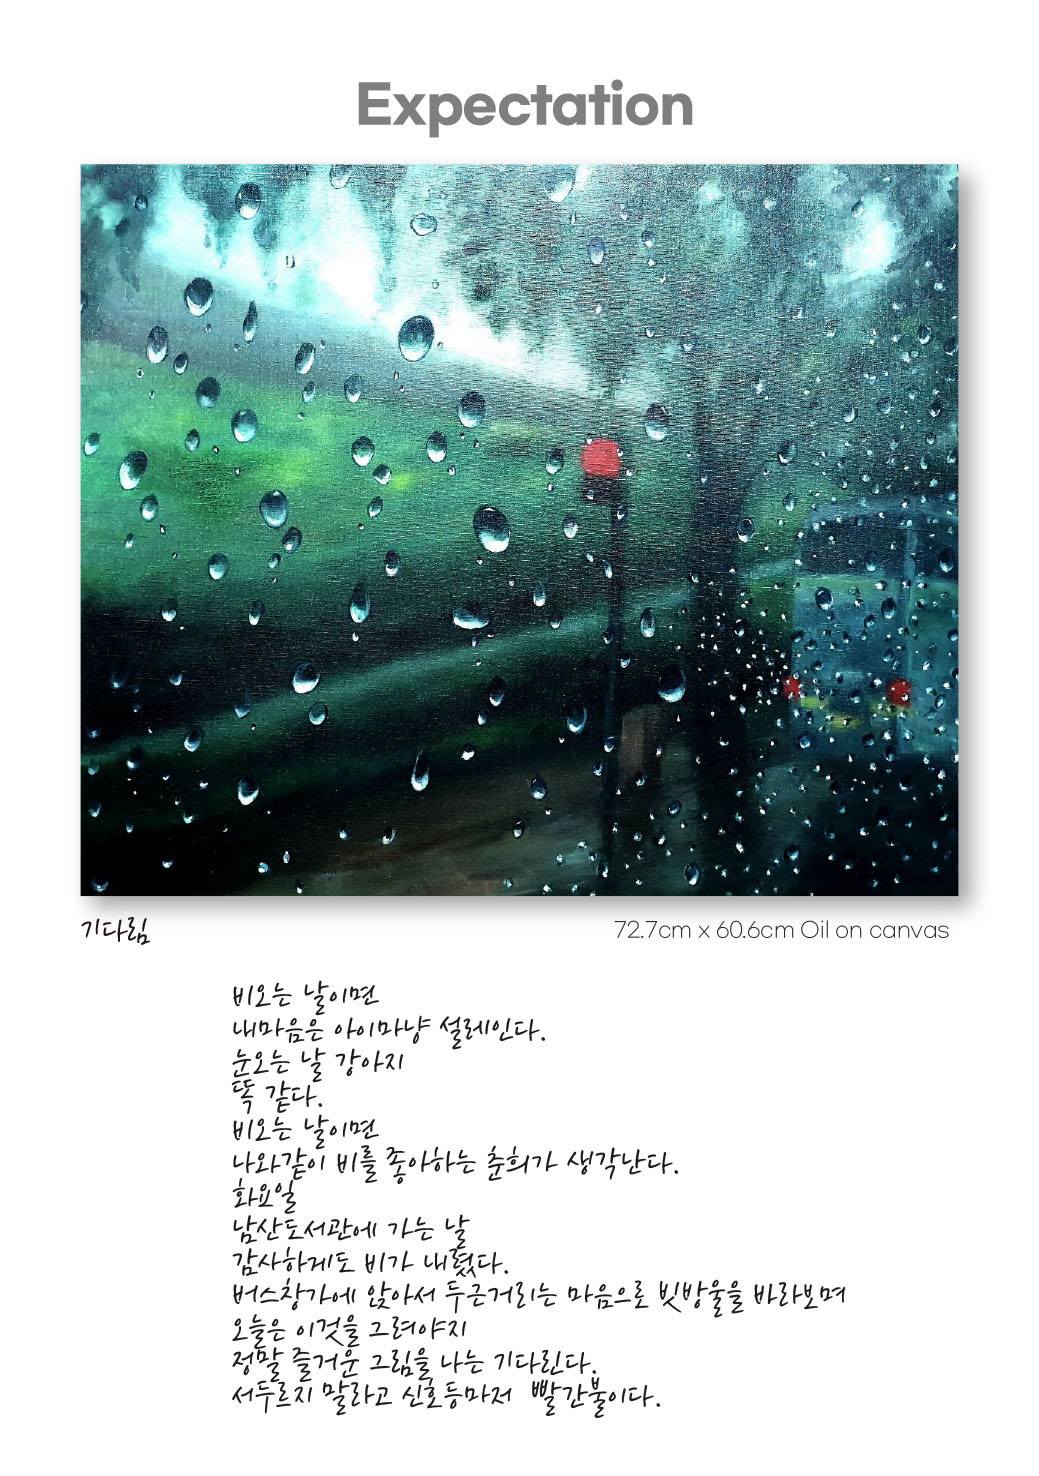 Expectation
기다림
72.7cm x 60.6cm Oil on canvas
비오는 날이면
내마음은 아이마냥 설레인다.
눈오는 날 강아지
똑 같다.
비오는 날이면
나와같이 비를 좋아하는 춘희가 생각난다.
화요일
남산도서관에 가는 날
감사하게도 비가 내렸다.
버스창가에 앉아서 두근거리는 마음으로 빗방울을 바라보며
오늘은 이것을 그려야지
정말 즐거운 그림을 나는 기다린다.
서두르지 말라고 신호등마저 빨간불이다.